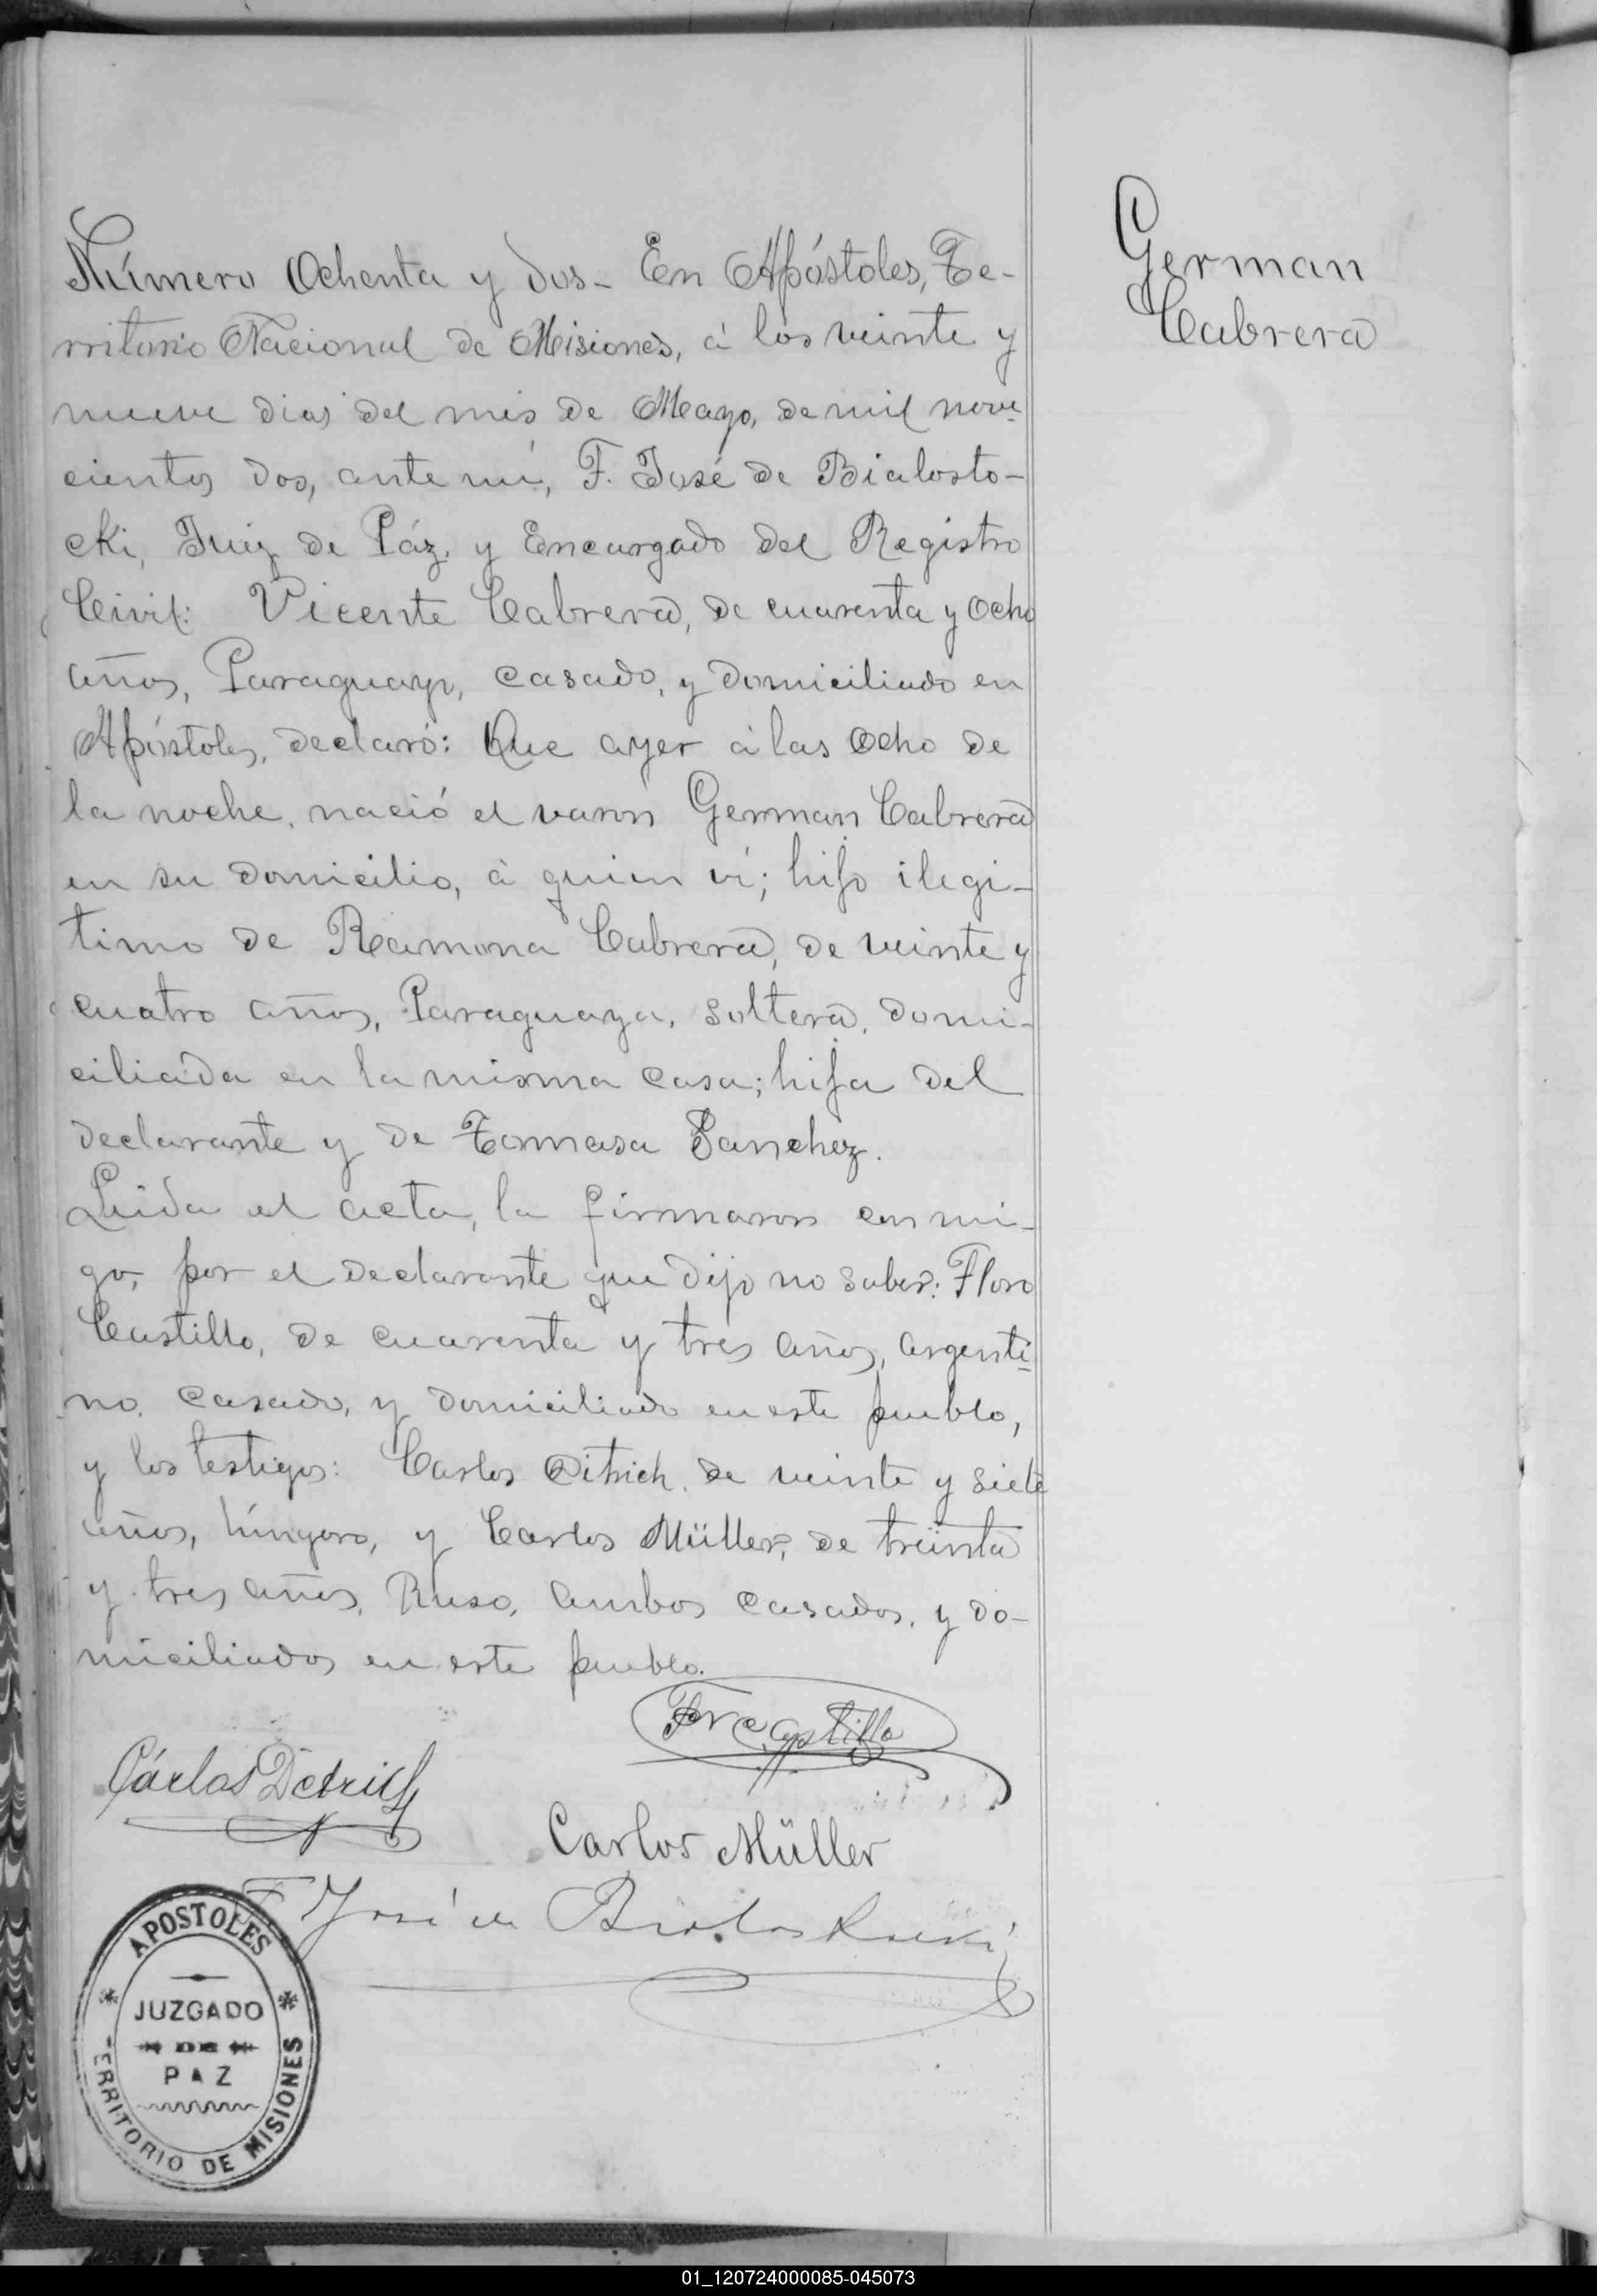 German
Cabrera
Número Ochenta y dos - En Apóstoles, Te-
rritorio Nacional de Misiones, á los veinte y
nueve dias del mes de Mayo, de mil nove-
cientos dos, ante mí, F. José de Bialosto-
cki, Juez de Páz, y Encargado del Registro
Civil: Vicente Cabrera, de cuarenta y ocho
años, Paraguayo, casado, y domiciliado en
Apóstoles, declaró: Que ayer á las ocho de
la noche, nació el varon German Cabrera
en su domicilio, á quien ví; hijo ilegi-
timo de Ramona Cabrera, de veinte y
cuatro años, Paraguaya, soltera, domi-
ciliada en la misma casa; hija del
declarante y de Tomasa Sanchez.
Leida el acta, la firmaron conmi-
go, por el declarante que dijo no saber: Floro
Castillo, de cuarenta y tres años, argenti-
no, casado, y domiciliado en este pueblo,
y los testigos: Carlos Ditrich, de veinte y siete
años, húngaro, y Carlos Müller, de treinta
y tres años, Ruso, ambos casados, y do-
miciliados en este pueblo.
Castillo
Cárlos Detrich
Carlos Müller
F José de Bialostocki
APOSTOLES
JUZGADO
DE
PAZ
TERRITORIO DE MISIONES
01_120724000085-045073